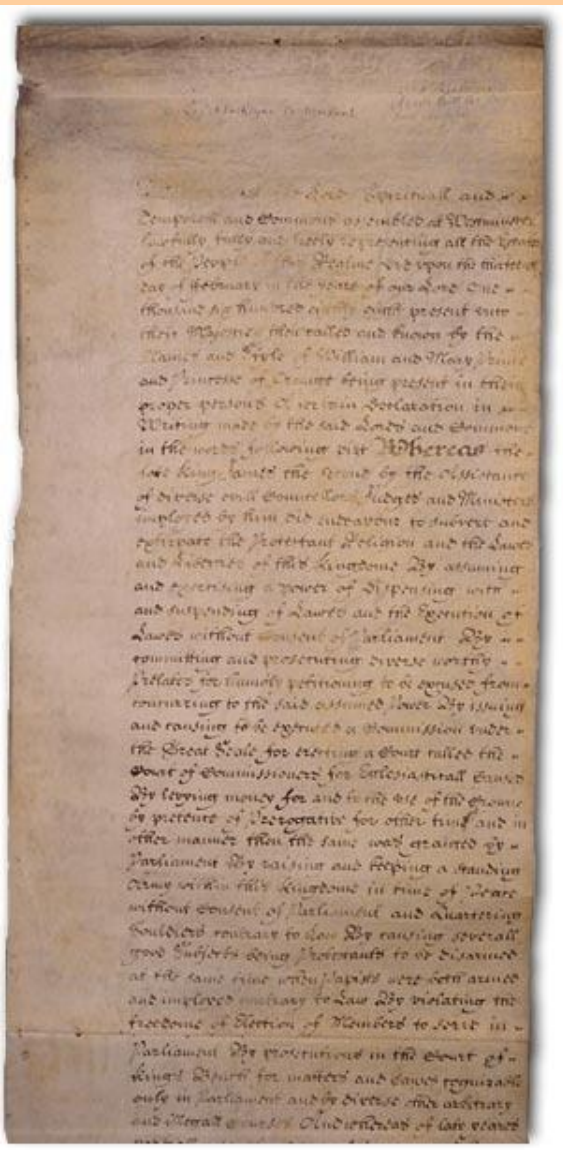 Lords Spirituall and
Temporall and Commons assembled at Westminster
lawfully fully and freely representing all the Estates
of the People of this Realme did upon the thirteenth
day of February in the yeare of our Lord One
thousand six hundred eighty eight present unto
their Majesties then called and known by the
Names and Stile of William and Mary Prince
and Princesse of Orange being present in their
proper persons A certain Declaration in
Writing made by the said Lords and Commons
in the words following vizt Whereas the
late King James the Second by the Assistance
of diverse evill Councellors Judges and Ministers
imployed by him did endeavour to subvert and
extirpate the Protestant Religion and the Lawes
and Liberties of this Kingdome By assuming
and exercising a power of dispensing with
and suspending of Lawes and the Execution of
Lawes without consent of Parliament By
committing and prosecuting diverse worthy
Prelates for humbly petitioning to be excused from
concurring to the said assumed Power By issuing
and causing to be executed a Commission under
the Great Seale for erecting a Court called the
Court of Commissioners for Ecclesiasticall Causes
By levying money for and to the use of the Crowne
by pretence of Prerogative for other time and in
other manner then the same was granted by
Parliament By raising and keeping a standing
Army within this Kingdome in time of Peace
without Consent of Parliament and Quartering
Souldiers contrary to Law By causing severall
good Subjects being Protestants to be disarmed
at the same time when Papists were both armed
and imployed contrary to Law By violating the
freedome of Election of Members to serve in
Parliament By prosecutions in the Court of
Kings Bench for matters and causes cognizable
only in Parliament and by diverse other arbitrary
and illegall courses And whereas of late yeares